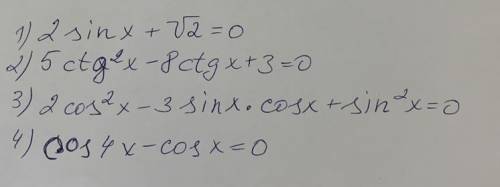 1) 2 sin x + √2 = 0
2) 5 ctg²x - 8 ctg x + 3 = 0
3) 2 cos²x - 3 sin x · cos x + sin²x = 0
4) cos 4x - cos x = 0